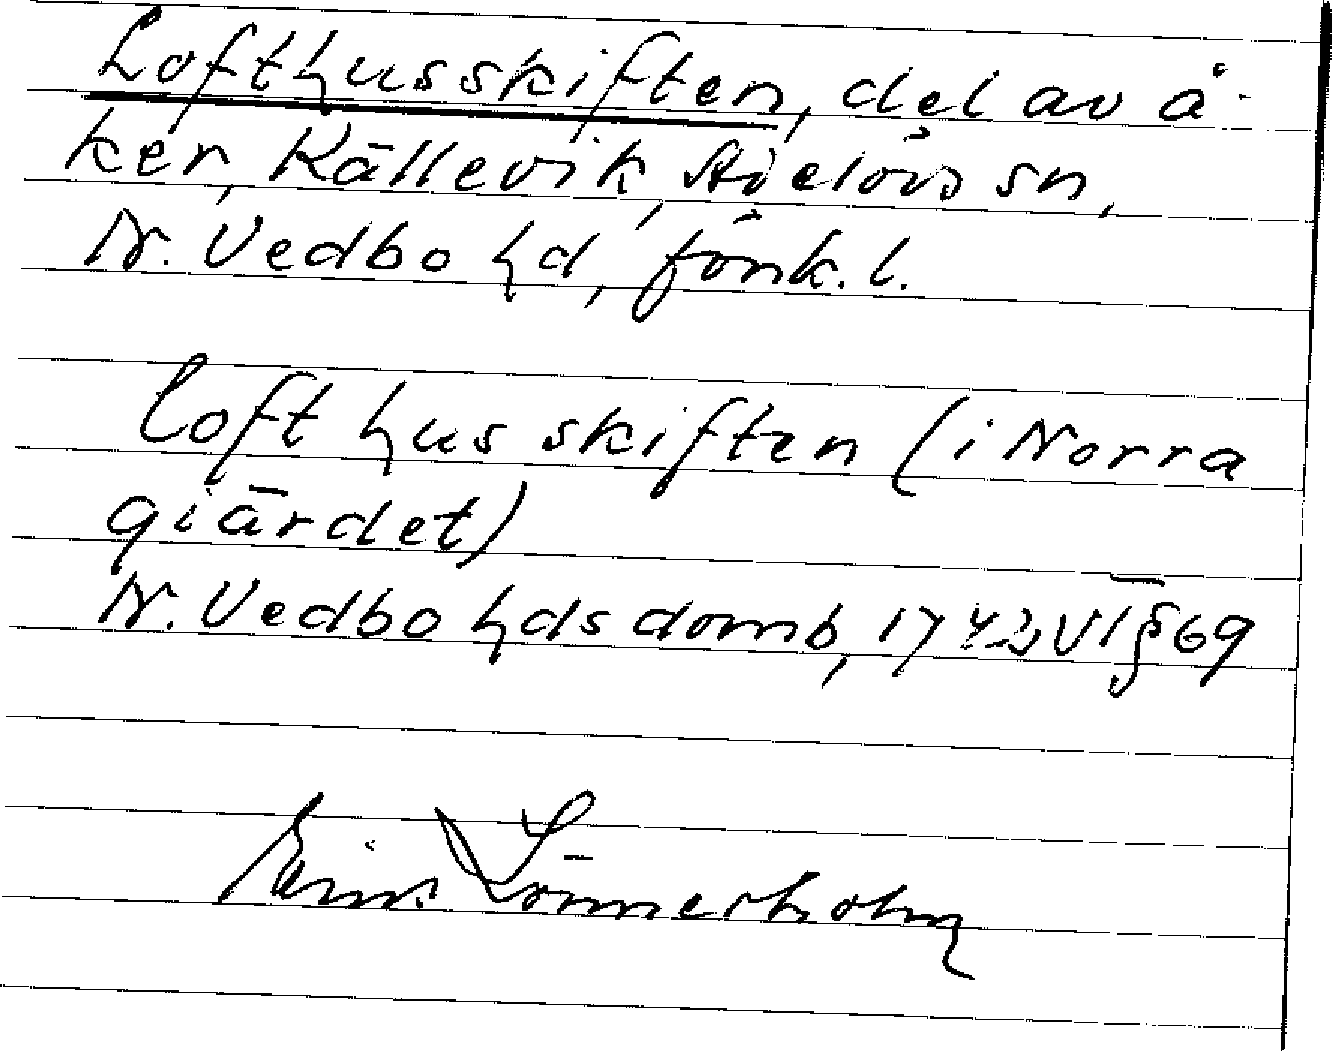 Lofthusskiften, del av å-
ker, Källevik, Adelövs sn,
N. Vedbo hd, Jönk. l.
Lofthusskiften (i Norra
giärdet)
N. Vedbo hds domb, 1742 VI § 69
Lönnerholm